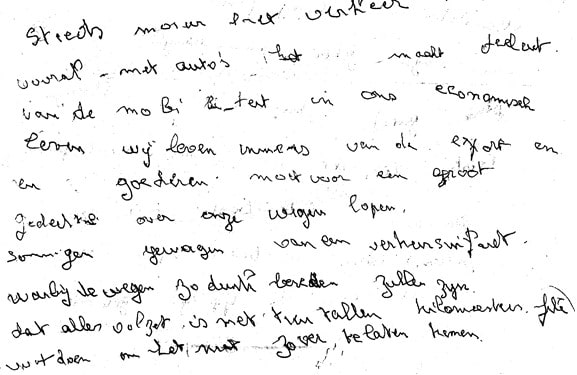 Steeds moeer het verkeer
vooral - met auto's het maakt deeluit.
van de mobi li_teit in ons economisch
leven wij leven immers van de export en
en goederen. moet voor een groot
gedeelte over onze wegen lopen.
sommigen gewagen van een verkeersinfarct.
warbij de wegen zo druk bereden zullen zijn.
dat alles volzet is met tien tallen kilomeeters file
wat doen om het niet zover te laten komen.